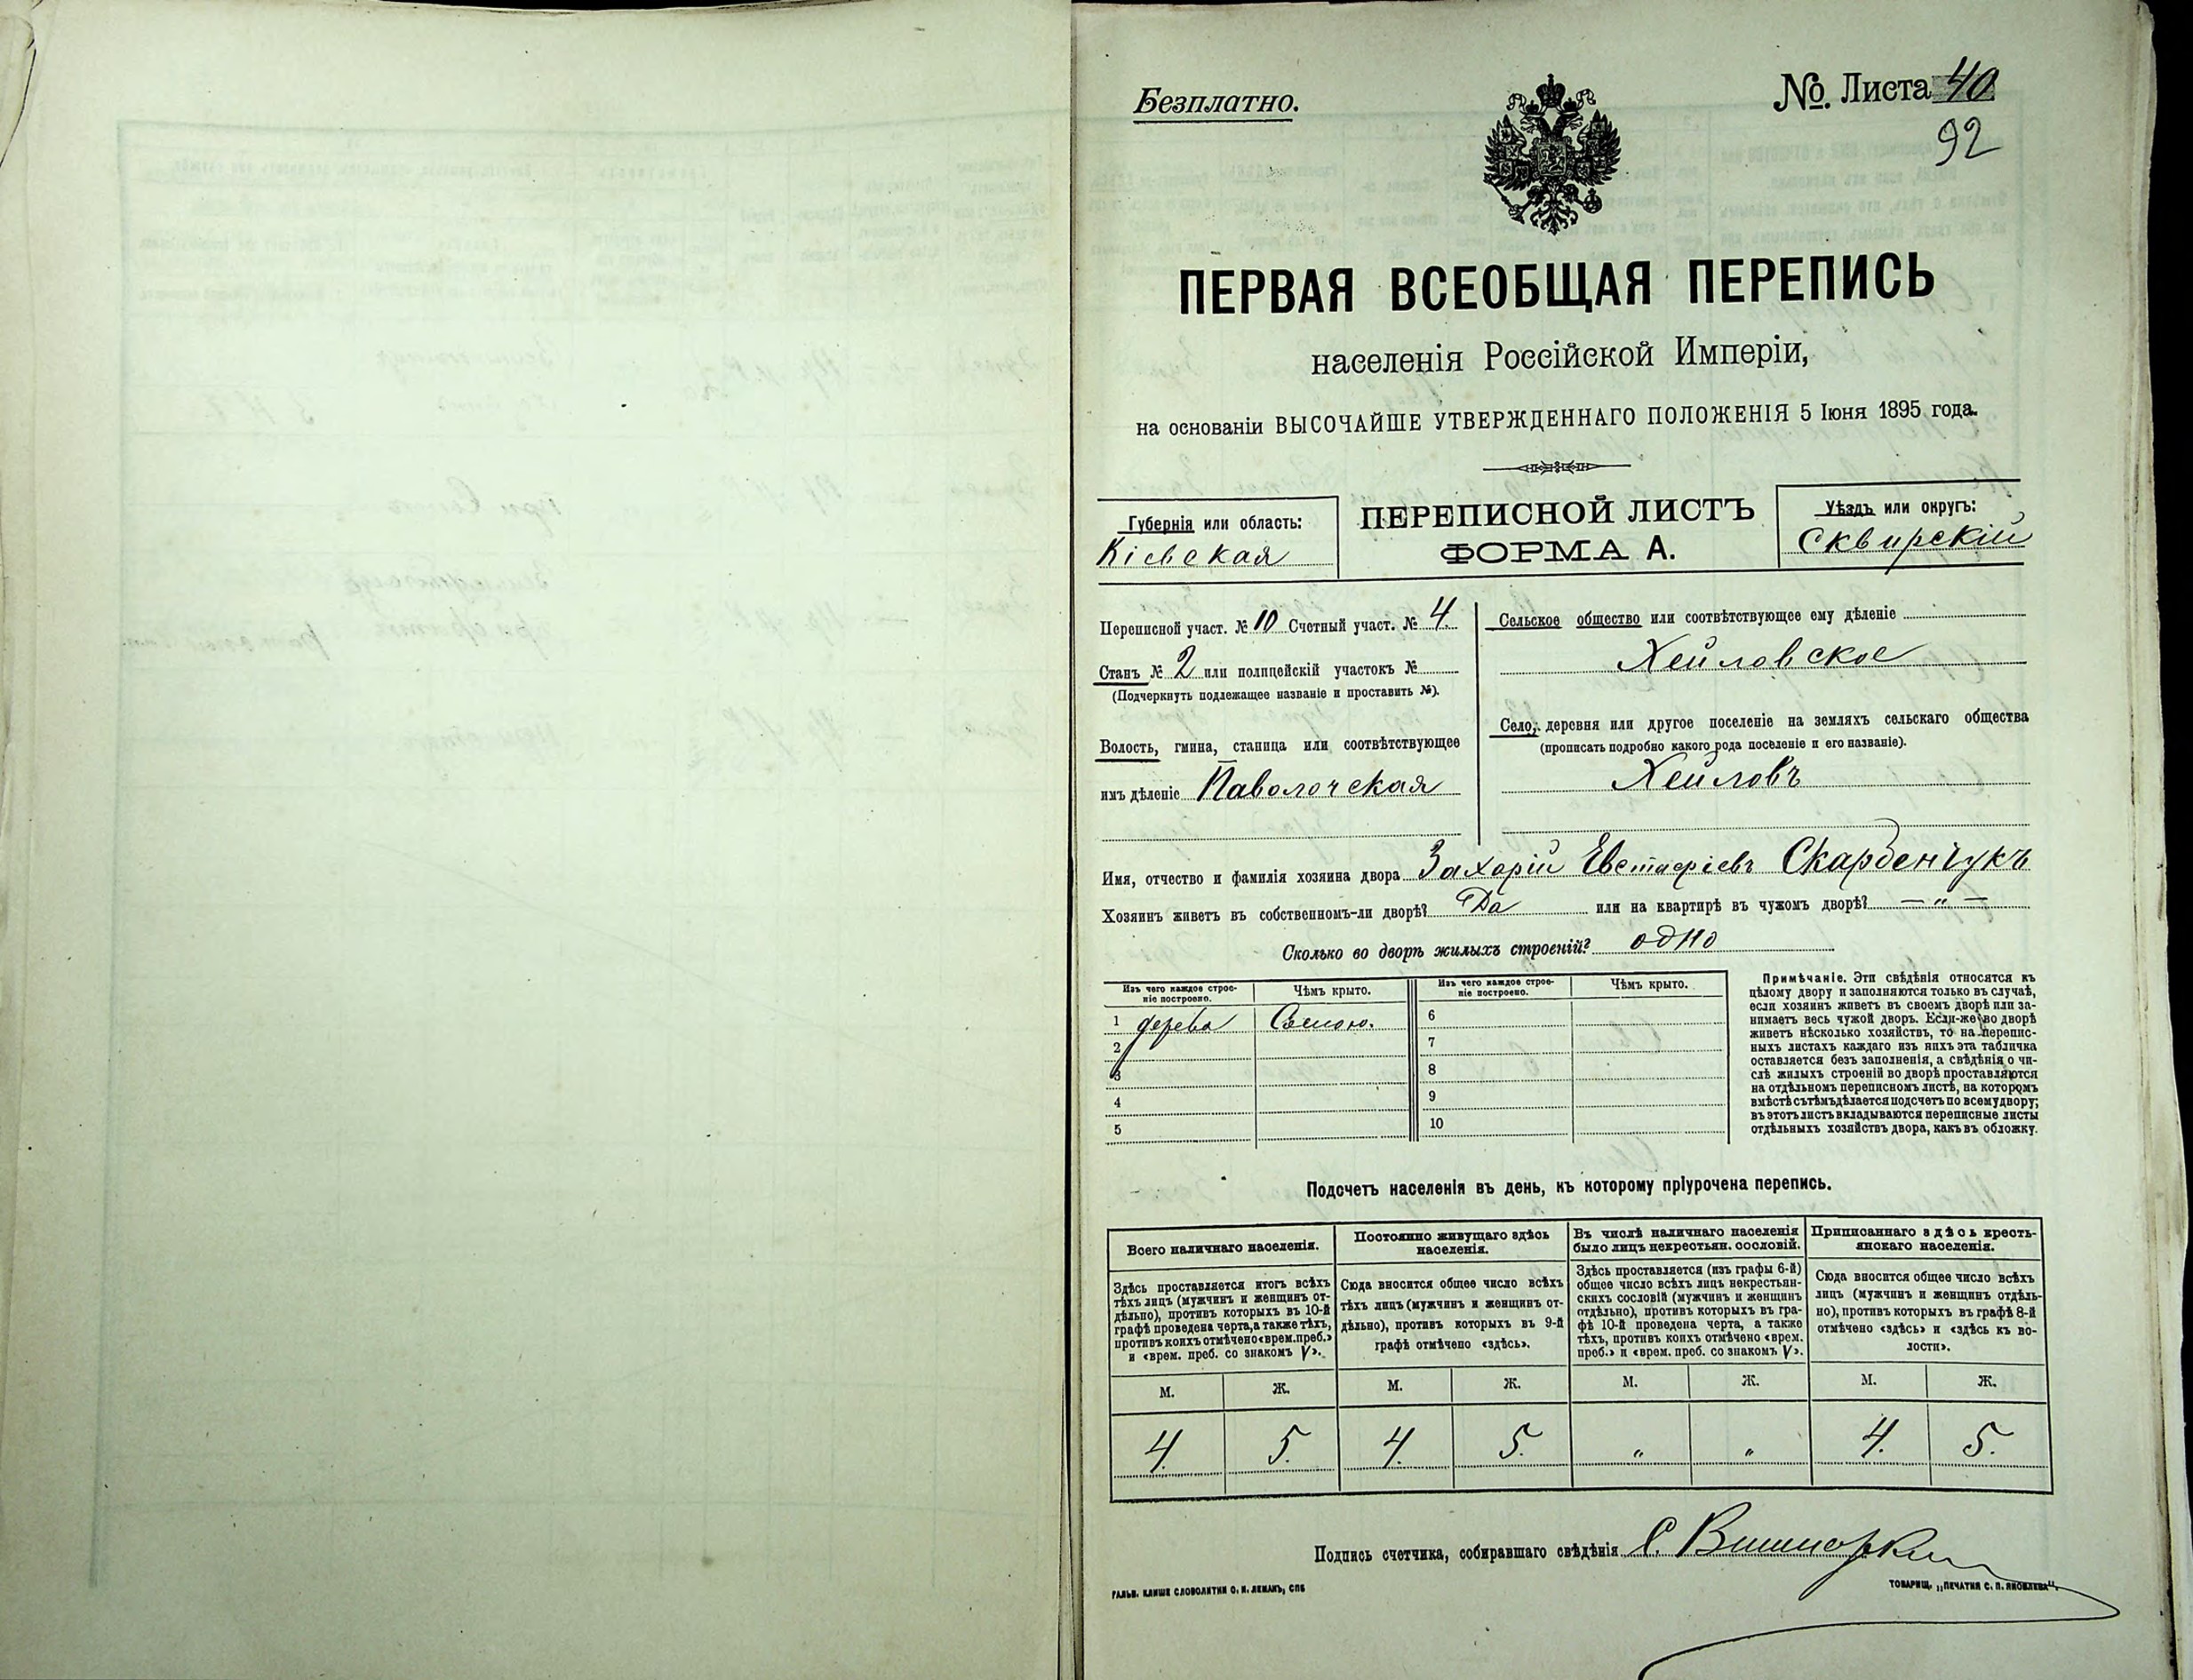 Безплатно.
№. Листа 40
92
ПЕРВАЯ ВСЕОБЩАЯ ПЕРЕПИСЬ
населенія Россійской Имперіи,
на основаніи ВЫСОЧАЙШЕ УТВЕРЖДЕННАГО ПОЛОЖЕНІЯ 5 Іюня 1895 года.
Губернія или область:
Кіевская
ПЕРЕПИСНОЙ ЛИСТЪ
ФОРМА А.
Уѣздъ или округъ:
Сквирскій
Переписной участ. № 10 Счетный участ. № 4.
Станъ № 2 или полицейскій участокъ №
(Подчеркнуть подлежащее названіе и проставить №).
Волость, гмина, станица или соотвѣтствующее
имъ дѣленіе Паволочская
Сельское общество или соотвѣтствующее ему дѣленіе
Хейловское
Село, деревня или другое поселеніе на земляхъ сельскаго общества
(прописать подробно какого рода поселеніе и его названіе).
Хейловъ
Имя, отчество и фамилія хозяина двора Захарій Евстафіевъ Скарбенчукъ
Хозяинъ живетъ въ собственномъ-ли дворѣ? Да или на квартирѣ въ чужомъ дворѣ? — „ —
Сколько во дворѣ жилыхъ строеній? одно
Изъ чего каждое строе-
ніе построено.
Чѣмъ крыто.
Изъ чего каждое строе-
ніе построено.
Чѣмъ крыто.
1 дерева Соломою.
2
3
4
5
6
7
8
9
10
Примѣчаніе. Эти свѣдѣнія относятся къ
цѣлому двору и заполняются только въ случаѣ,
если хозяинъ живетъ въ своемъ дворѣ или за-
нимаетъ весь чужой дворъ. Если-же во дворѣ
живетъ нѣсколько хозяйствъ, то на перепис-
ныхъ листахъ каждаго изъ нихъ эта табличка
оставляется безъ заполненія, а свѣдѣнія о чи-
слѣ жилыхъ строеній во дворѣ проставляются
на отдѣльномъ переписномъ листѣ, на которомъ
вмѣстѣ съ тѣмъ дѣлается подсчетъ по всему двору;
въ этотъ листъ вкладываются переписные листы
отдѣльныхъ хозяйствъ двора, какъ въ обложку.
Подсчетъ населенія въ день, къ которому пріурочена перепись.
Всего наличнаго населенія.
Здѣсь проставляется итогъ всѣхъ
тѣхъ лицъ (мужчинъ и женщинъ от-
дѣльно), противъ которыхъ въ 10-й
графѣ проведена черта, а также тѣхъ,
противъ коихъ отмѣчено «врем. преб.»
и «врем. преб. со знакомъ V».
Постоянно живущаго здѣсь
населенія.
Сюда вносится общее число всѣхъ
тѣхъ лицъ (мужчинъ и женщинъ от-
дѣльно), противъ которыхъ въ 9-й
графѣ отмѣчено «здѣсь».
Въ числѣ наличнаго населенія
было лицъ некрестьян. сословій.
Здѣсь проставляется (изъ графы 6-й)
общее число всѣхъ лицъ некрестьян-
скихъ сословій (мужчинъ и женщинъ
отдѣльно), противъ которыхъ въ гра-
фѣ 10-й проведена черта, а также
тѣхъ, противъ коихъ отмѣчено «врем.
преб.» и «врем. преб. со знакомъ V».
Приписаннаго здѣсь кресть-
янскаго населенія.
Сюда вносится общее число всѣхъ
лицъ (мужчинъ и женщинъ отдѣль-
но), противъ которыхъ въ графѣ 8-й
отмѣчено «здѣсь» и «здѣсь къ во-
лости».
М. Ж. М. Ж. М. Ж. М. Ж.
4. 5. 4. 5. „ „ 4. 5.
Подпись счетчика, собиравшаго свѣдѣнія С.
ГАЛЬВ. КЛИШЕ СЛОВОЛИТНИ О. И. ЛЕМАНЪ, СПБ
ТОВАРИЩ. „ПЕЧАТНЯ С. П. ЯКОВЛЕВА".